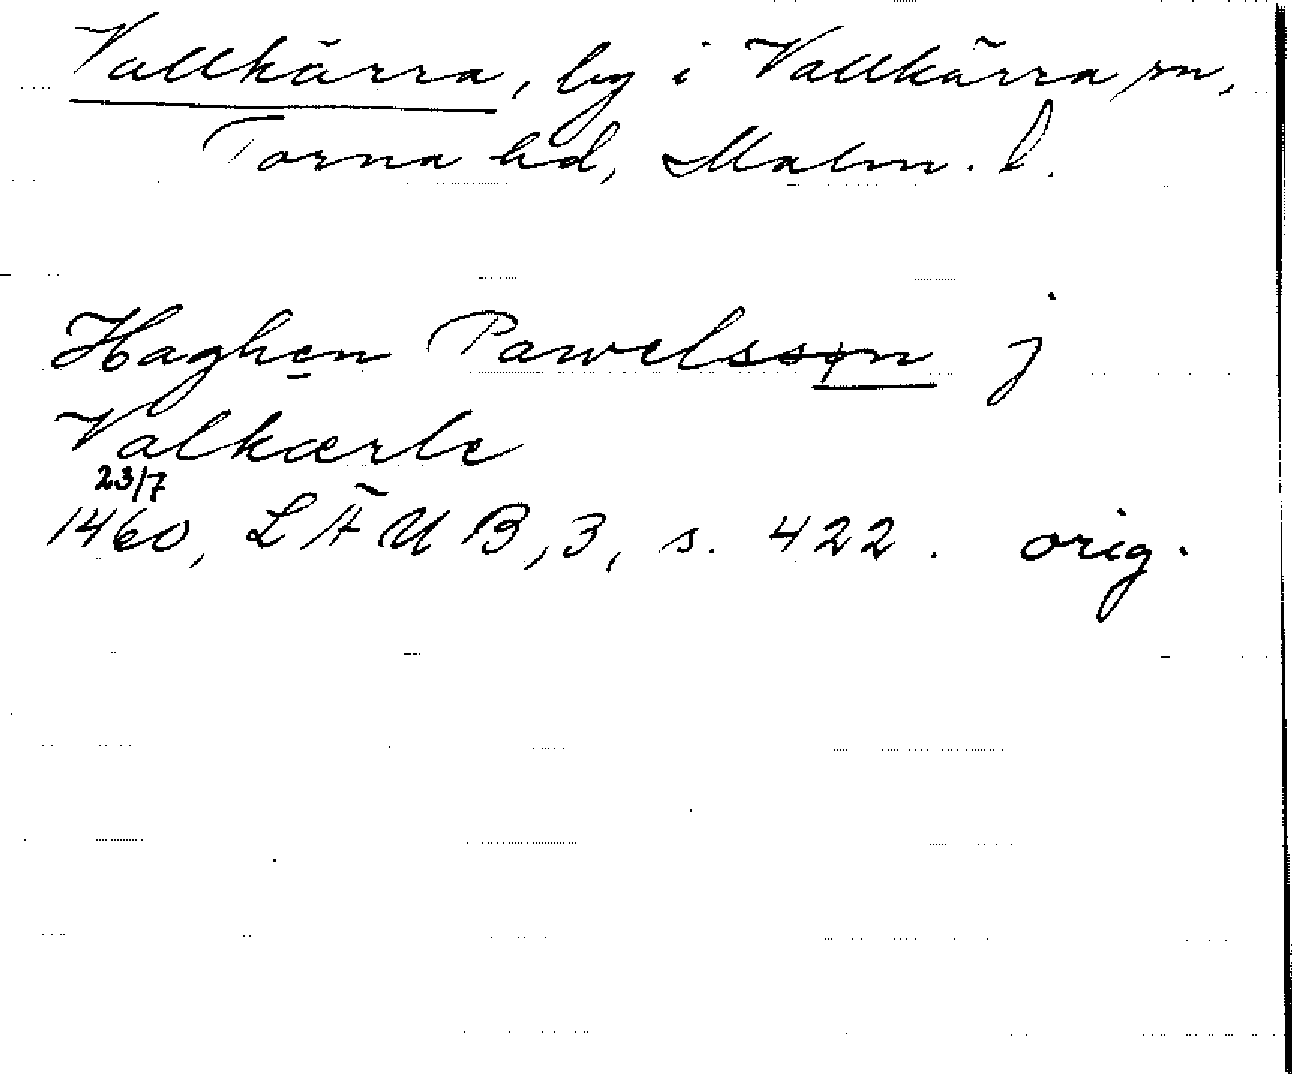 Vallkärra, by i Vallkärra sn,
Torna hd, Malm. l.
Haghen Pawelssøn j
Valkærle
23/7
1460, LÄUB, 3, s. 422. orig.